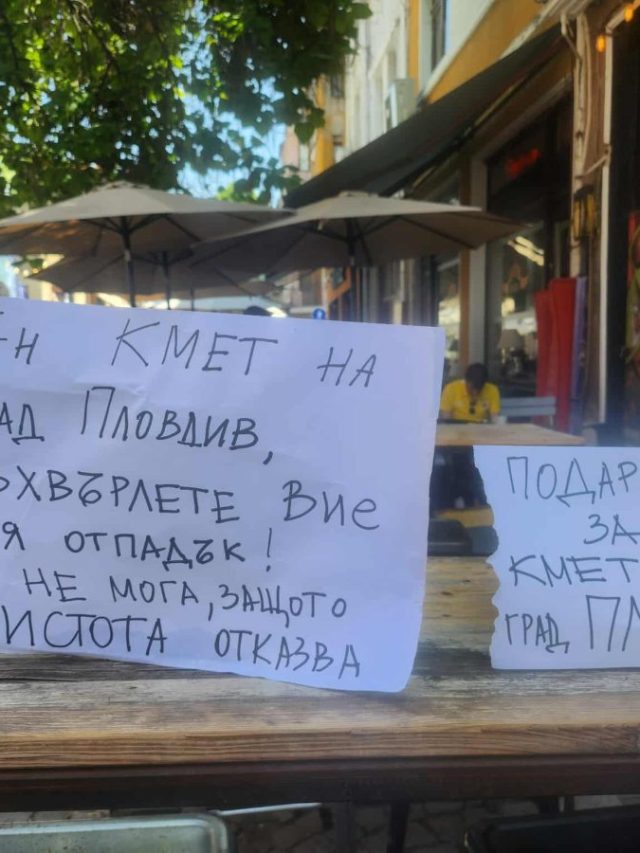 Н КМЕТ НА
АД ПЛОВДИВ,
ЪХВЪРЛЕТЕ ВИЕ
Я ОТПАДЪК!
НЕ МОГА, ЗАЩОТО
ИСТОТА ОТКАЗВА
ПОДАР
ЗА
КМЕТ
ГРАД ПЛ